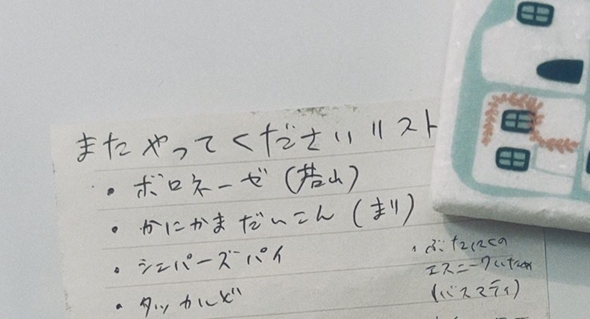 またやってくださいリスト
・ボロネーゼ(若山)
・かにかまだいこん(まり)
・シェパーズパイ
・タッカルビ
・ぶたにくの
エスニークいため
(バスマティ)